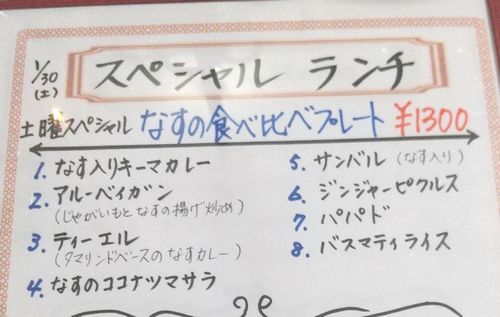 1/30
(土)
スペシャル ランチ
土曜スペシャル なすの食べ比べプレート ¥1300
1. なす入りキーマカレー
2. アルーベイガン
(じゃがいもとなすの揚げ炒め)
3. ティーエル
(タマリンドベースのなすカレー)
4. なすのココナツマサラ
5. サンバル(なす入り)
6. ジンジャーピクルス
7. パパド
8. バスマティライス